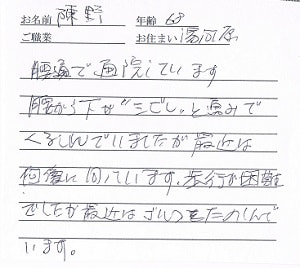 お名前 陳野 年齢 68
ご職業 お住まい 湯河原
腰痛で通院しています
腰から下が"しびれ"と痛みで
くるしんでいましたが最近は
回復に向っています。歩行が困難
でしたが最近はゴルフをたのしんで
います。